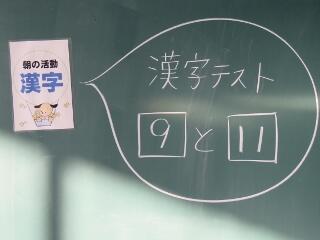 朝の活動
漢字
漢字テスト
9 と 11